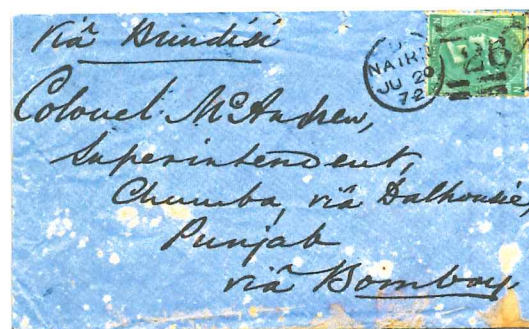 Viâ Brindisi
NAIRN
JU 20
72
Colonel McAndrew,
Superintendent,
Chumba, viâ Dalhousie
Punjab
viâ Bombay